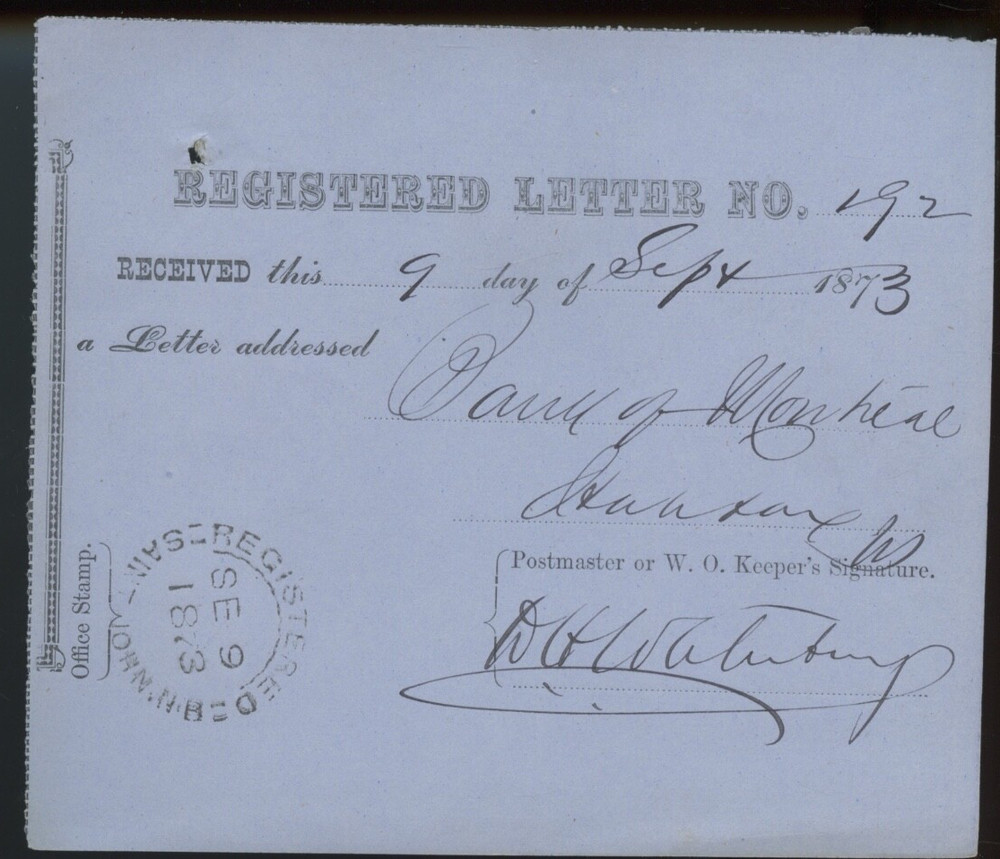 REGISTERED LETTER NO. 192
RECEIVED this 9 day of Sept 1873
a Letter addressed
Bank of Montreal
Postmaster or W. O. Keeper's Signature.
D H Waterbury
Office Stamp.
REGISTERED
SAINT JOHN N.B
SE 9
1873